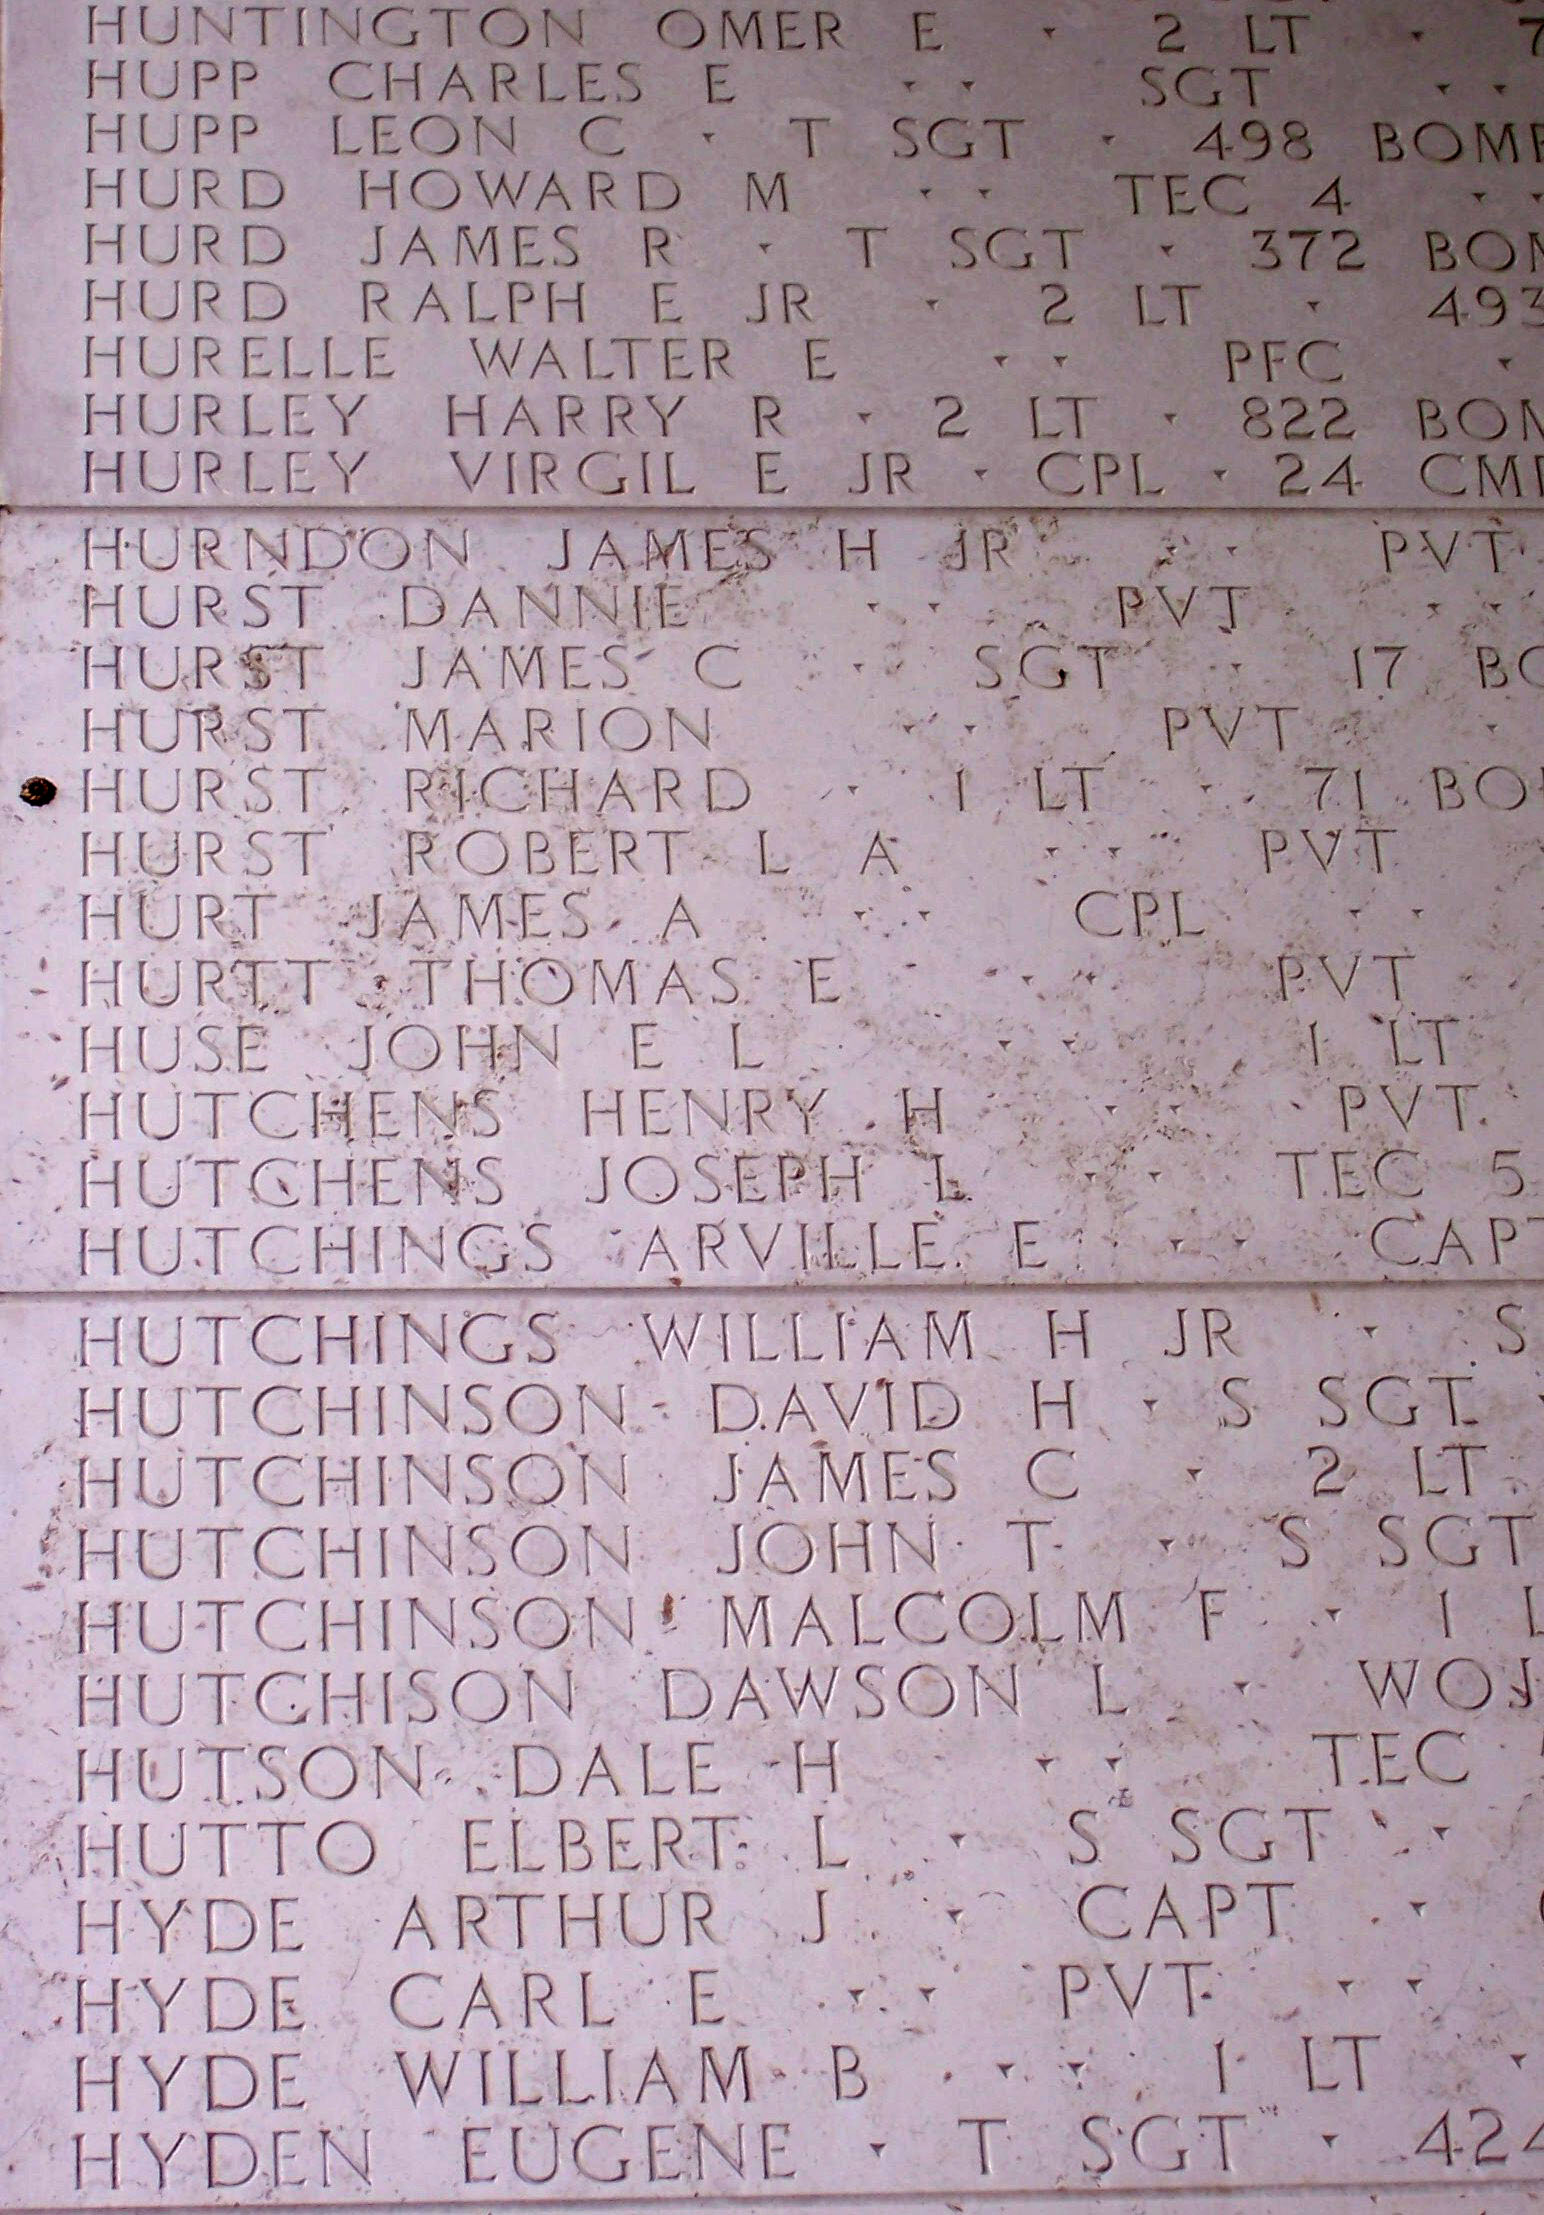 HUNTINGTON OMER E · 2 LT · 7
HUPP CHARLES E · · SGT · ·
HUPP LEON C · T SGT · 498 BOMB
HURD HOWARD M · · TEC 4 · ·
HURD JAMES R · T SGT · 372 BOM
HURD RALPH E JR · 2 LT · 493
HURELLE WALTER E · · PFC ·
HURLEY HARRY R · 2 LT · 822 BOM
HURLEY VIRGIL E JR · CPL · 24 CML
HURNDON JAMES H JR · · PVT
HURST DANNIE · · PVT · ·
HURST JAMES C · SGT · 17 BO
HURST MARION · · PVT ·
HURST RICHARD · 1 LT · 71 BO
HURST ROBERT L A · · PVT
HURT JAMES A · · CPL · ·
HURTT THOMAS E · · PVT
HUSE JOHN E L · · 1 LT
HUTCHENS HENRY H · · PVT
HUTCHENS JOSEPH L · · TEC 5
HUTCHINGS ARVILLE E · · CAPT
HUTCHINGS WILLIAM H JR · S
HUTCHINSON DAVID H · S SGT ·
HUTCHINSON JAMES C · 2 LT
HUTCHINSON JOHN T · S SGT
HUTCHINSON MALCOLM F · 1 L
HUTCHISON DAWSON L · WOJ
HUTSON DALE H · · TEC
HUTTO ELBERT L · S SGT ·
HYDE ARTHUR J · CAPT ·
HYDE CARL E · · PVT · ·
HYDE WILLIAM B · · 1 LT ·
HYDEN EUGENE · T SGT · 424